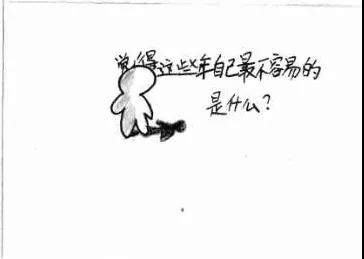 觉得这些年自己最不容易的
是什么?